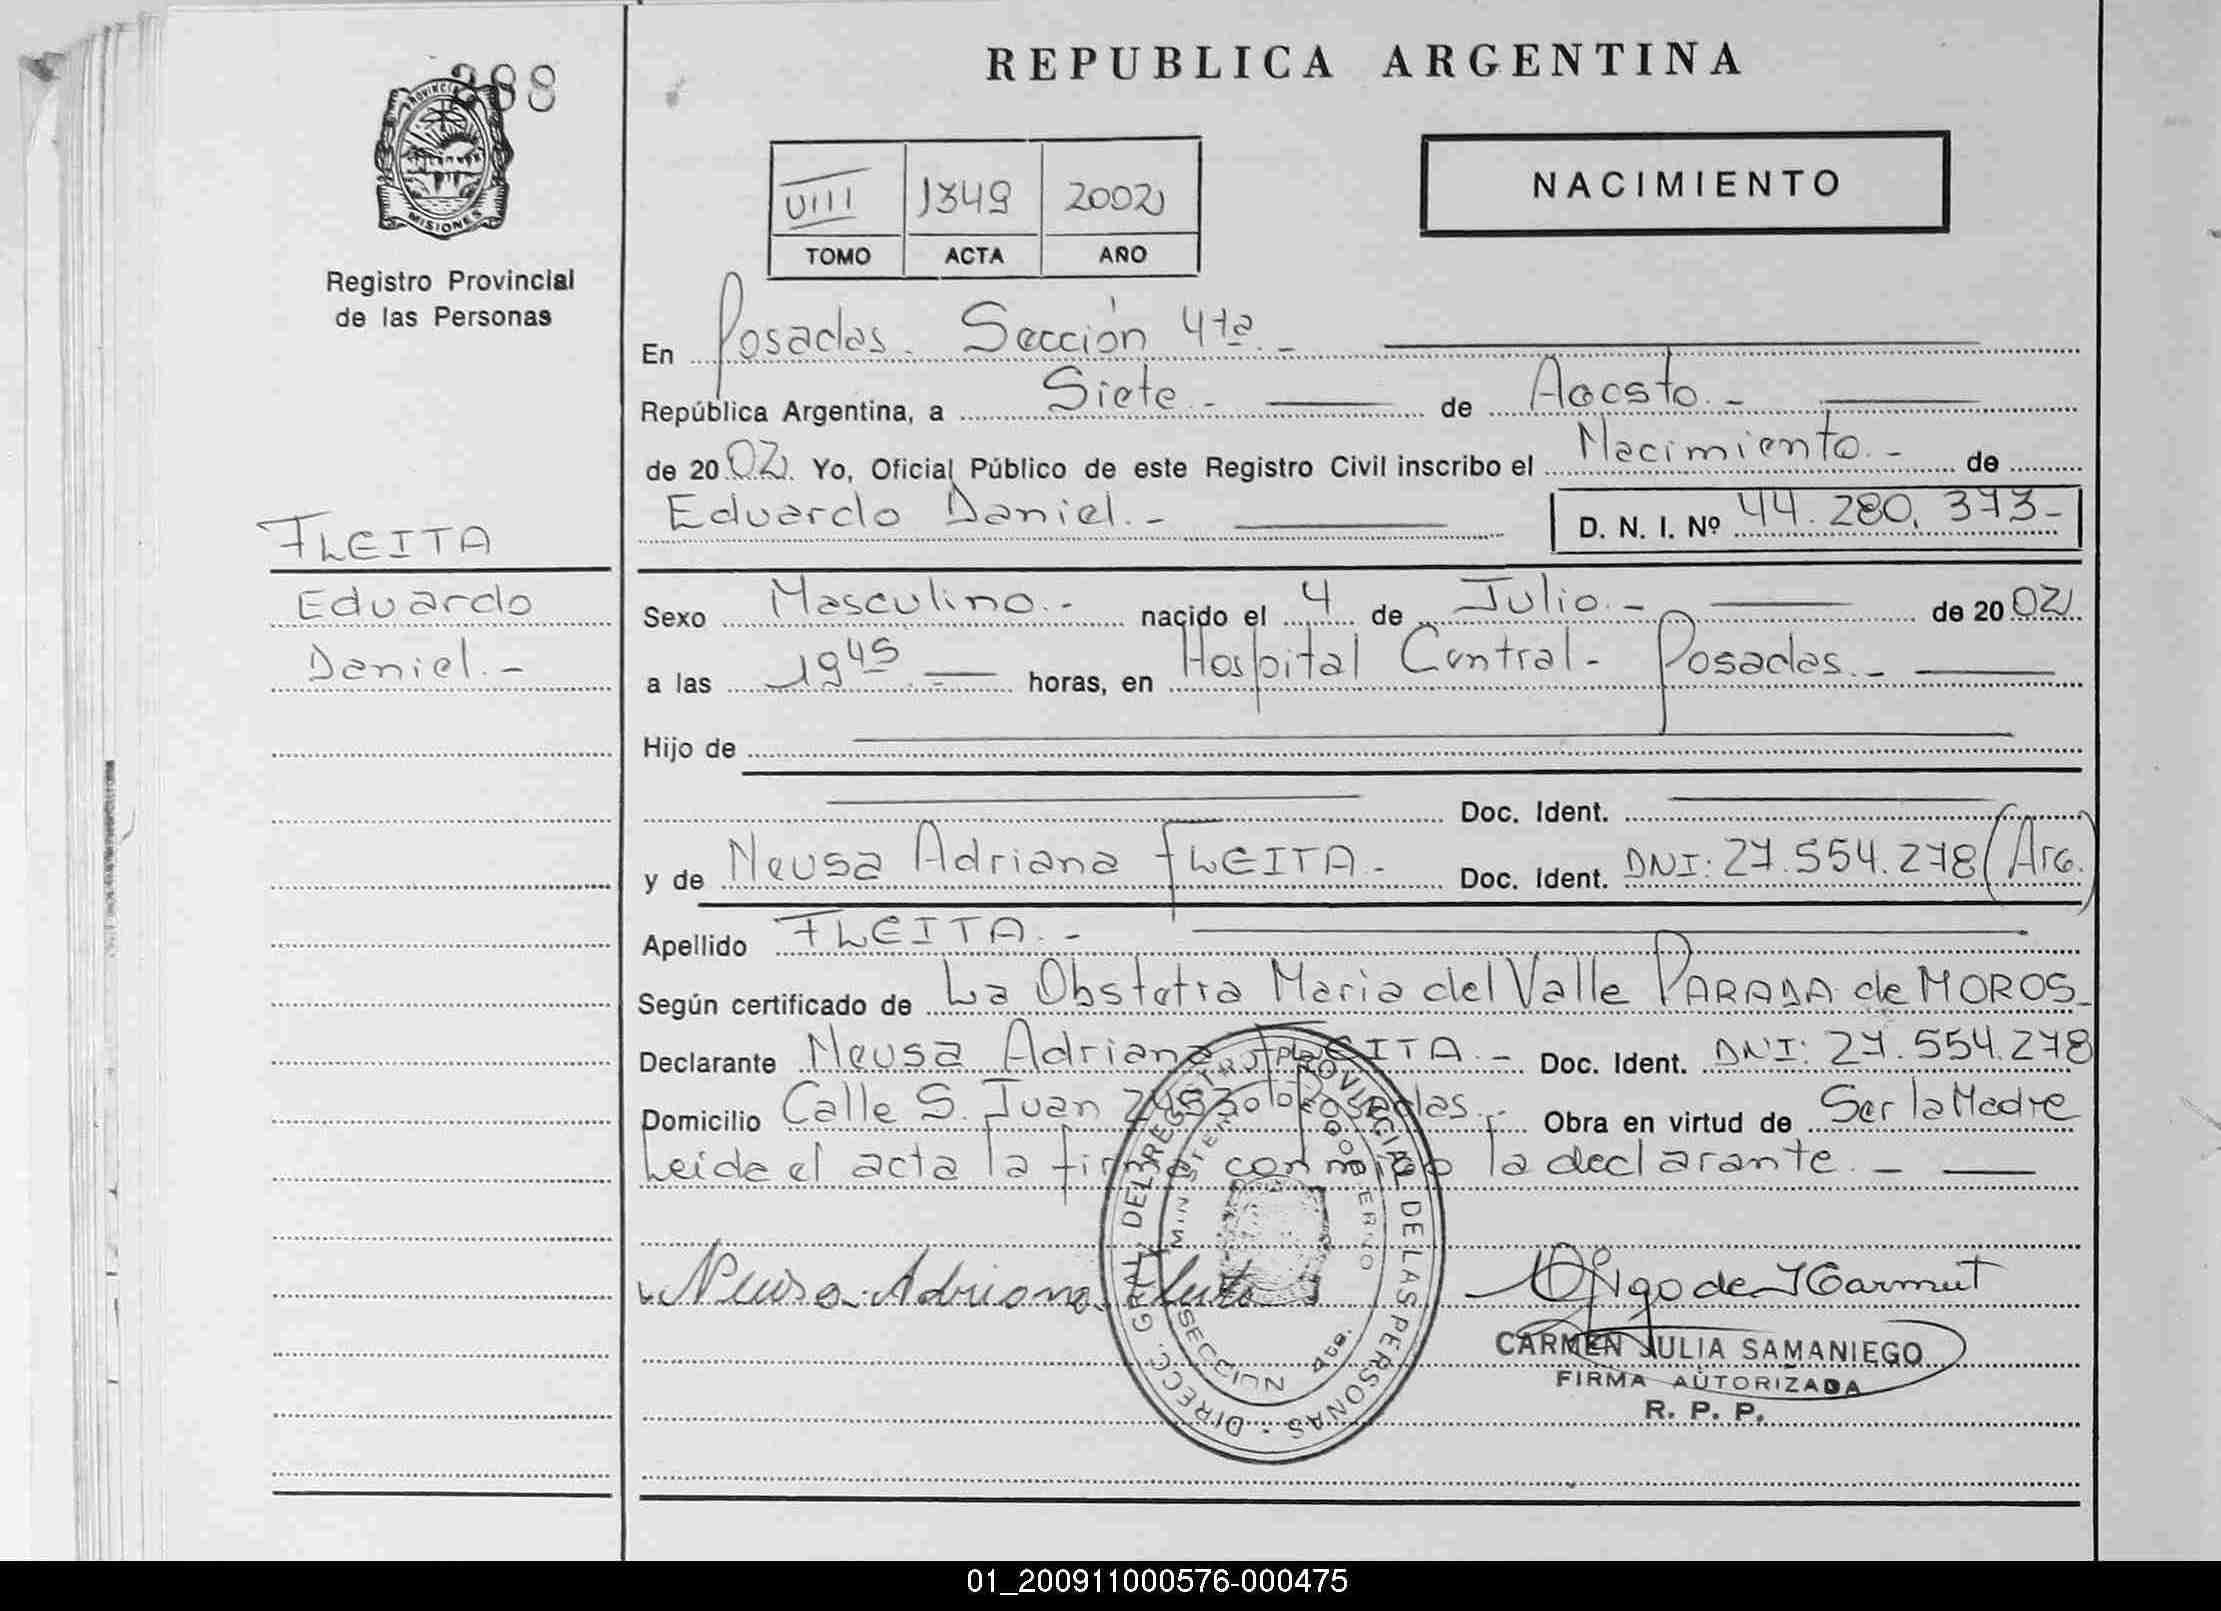 388
PROVINCIA
MISIONES
Registro Provincial
de las Personas
FLEITA
Eduardo
Daniel.-
REPUBLICA ARGENTINA
VIII 1349 2002
TOMO ACTA AÑO
NACIMIENTO
En Posadas. Sección 4ta.-
República Argentina, a Siete.- de Agosto.-
de 2002. Yo, Oficial Público de este Registro Civil inscribo el Nacimiento.- de
Eduardo Daniel.- D. N. I. Nº 44.280.373-
Sexo Masculino.- nacido el 4 de Julio.- de 2002
a las 19 45 horas, en Hospital Central- Posadas.-
Hijo de
Doc. Ident.
y de Neusa Adriana FLEITA.- Doc. Ident. DNI: 27.554.278 (Arg.
Apellido FLEITA.-
Según certificado de La Obstetra Maria del Valle PARADA de MOROS-
Declarante Neusa Adriana FLEITA.- Doc. Ident. DNI: 27.554.278
Domicilio Calle S. Juan Posadas.- Obra en virtud de Ser la Madre
Leida el acta la firma conmigo la declarante.-
DIRECC. GRAL. DEL REGISTRO PROVINCIAL DE LAS PERSONAS
MINISTERIO DE GOBIERNO
SECCION 4ta.
Neusa Adriana Fleita
CARMEN JULIA SAMANIEGO
FIRMA AUTORIZADA
R. P. P.
01_200911000576-000475